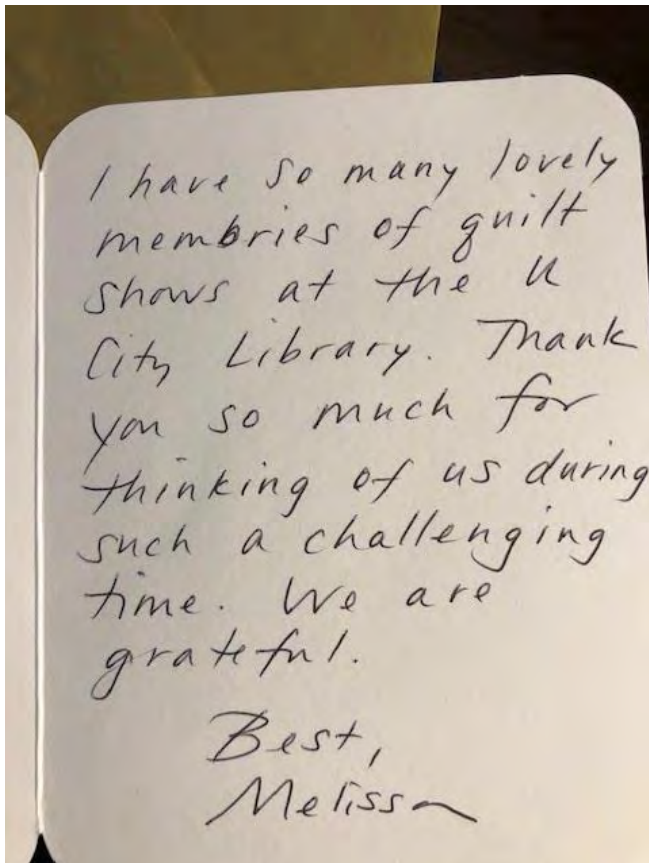 I have so many lovely
memories of quilt
shows at the U
City Library. Thank
you so much for
thinking of us during
such a challenging
time. We are
grateful.
Best,
Melissa